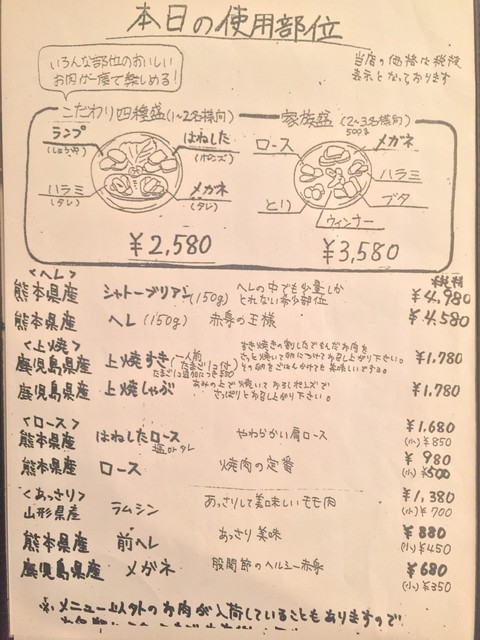 本日の使用部位
いろんな部位のおいしい
お肉が一度で楽しめる!
当店の価格は税抜
表示となっております
こだわり四種盛(1〜2名様向)
ランプ
(しょうゆ)
はねした
(ポンズ)
ハラミ
(タレ)
メガネ
(タレ)
¥2,580
家族盛(2〜3名様向)
500g
ロース
メガネ
ハラミ
とり
ブタ
ウィンナー
¥3,580
<ヘレ>
税抜
熊本県産 シャトーブリアン(150g) ヘレの中でも少量しか
とれない希少部位 ¥4,980
熊本県産 ヘレ(150g) 赤身の王様 ¥4,580
<上焼>
鹿児島県産 上焼すき(一人前 たまご1コ付) ¥1,780
たまご1コ追加につき
すき焼きの割したでもんだお肉を
さっと焼いて卵につけてお召し上がり下さい。
その卵をごはんかけても美味しいですよ。
鹿児島県産 上焼しゃぶ あみの上で焼いておろしポンズで
さっぱりとお召し上がり下さい。 ¥1,780
<ロース>
熊本県産 はねしたロース やわらかい肩ロース ¥1,680
塩orタレ (小)¥850
熊本県産 ロース 焼肉の定番 ¥980
(小)¥500
<あっさり>
山形県産 ラムシン あっさりして美味しいモモ肉 ¥1,380
(小)¥700
熊本県産 前ヘレ あっさり美味 ¥880
(小)¥450
鹿児島県産 メガネ 股関節のヘルシー赤身 ¥680
(小)¥350
※メニュー以外のお肉が入荷していることもありますので